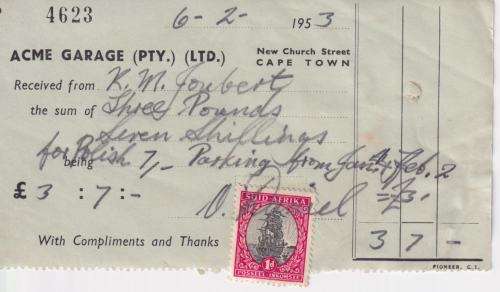 4623
6-2-1953
ACME GARAGE (PTY.) (LTD.)
New Church Street
CAPE TOWN
Received from K. M. Joubert
the sum of Three Pounds
Seven Shillings
for Polish 7/- Parking from Jan. + Feb. 2
being
£ 3 : 7 : -
= £3.
With Compliments and Thanks
3 7 -
SUID AFRIKA
1D
POSSEEL INKOMSTE
PIONEER, C.T.